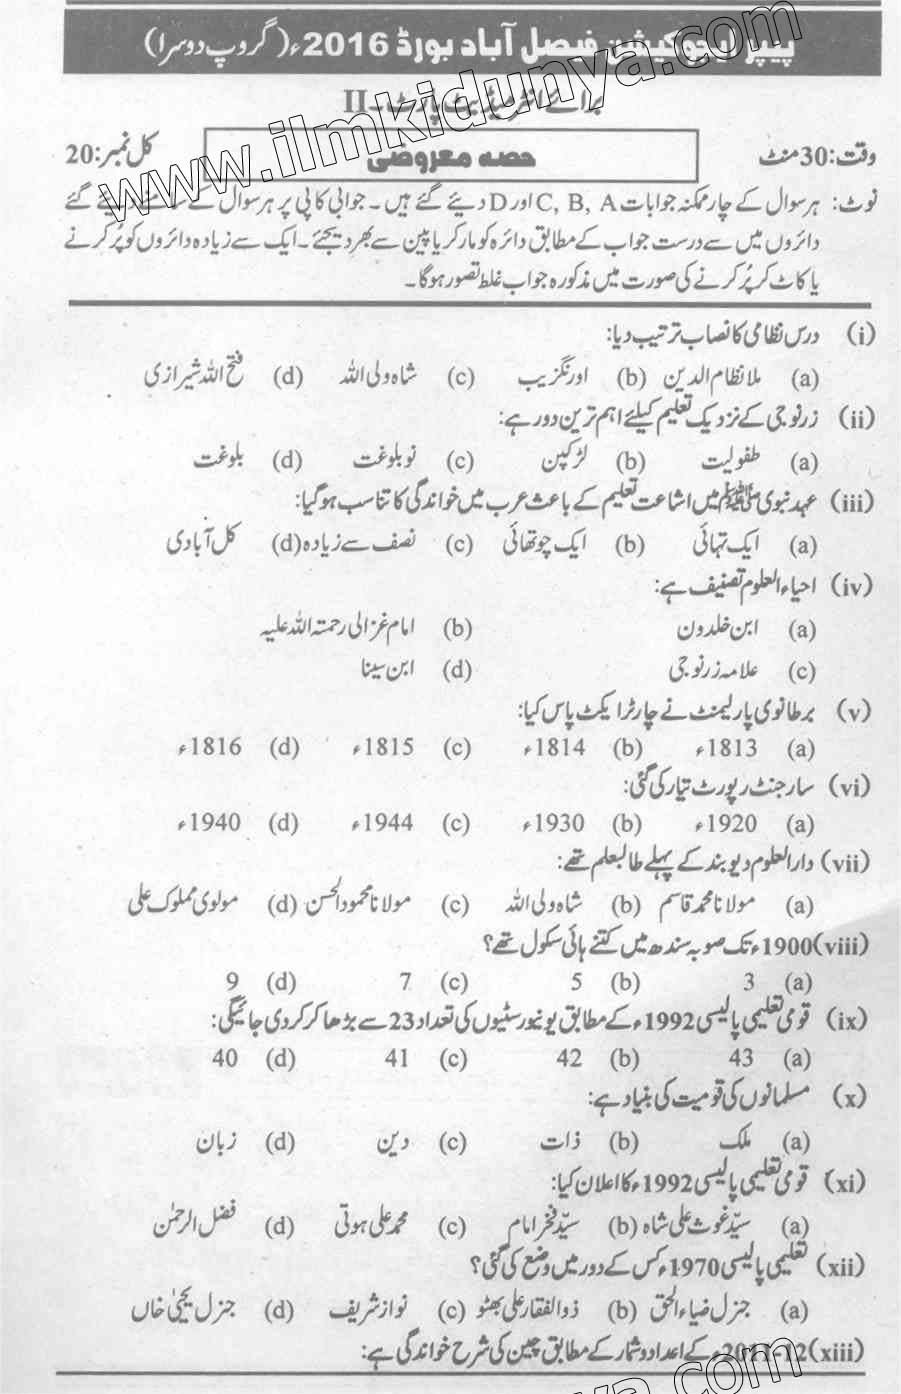 پیپر ایجوکیشن فیصل آباد بورڈ 2016ء (گروپ دوسرا)
برائے انٹرمیڈیٹ پارٹ - II
وقت: 30 منٹ حصہ معروضی کل نمبر: 20
نوٹ: ہر سوال کے چار ممکنہ جوابات C, B, A اور D دیئے گئے ہیں۔ جوابی کاپی پر ہر سوال کے سامنے دیئے گئے
دائروں میں سے درست جواب کے مطابق دائرہ کو مارکر یا پین سے بھر دیجئے۔ ایک سے زیادہ دائروں کو پُر کرنے
یا کاٹ کر پُر کرنے کی صورت میں مذکورہ جواب غلط تصور ہوگا۔
(i) درس نظامی کا نصاب ترتیب دیا:
(a) ملا نظام الدین (b) اورنگزیب (c) شاہ ولی اللہ (d) فتح اللہ شیرازی
(ii) زرنوجی کے نزدیک تعلیم کیلئے اہم ترین دور ہے:
(a) طفولیت (b) لڑکپن (c) نوبلوغت (d) بلوغت
(iii) عہد نبوی ﷺ میں اشاعت تعلیم کے باعث عرب میں خواندگی کا تناسب ہوگیا:
(a) ایک تہائی (b) ایک چوتھائی (c) نصف سے زیادہ (d) کل آبادی
(iv) احیاء العلوم تصنیف ہے:
(a) ابن خلدون (b) امام غزالی رحمتہ اللہ علیہ
(c) علامہ زرنوجی (d) ابن سینا
(v) برطانوی پارلیمنٹ نے چارٹر ایکٹ پاس کیا:
(a) 1813ء (b) 1814ء (c) 1815ء (d) 1816ء
(vi) سارجنٹ رپورٹ تیار کی گئی:
(a) 1920ء (b) 1930ء (c) 1944ء (d) 1940ء
(vii) دارالعلوم دیوبند کے پہلے طالبعلم تھے:
(a) مولانا محمد قاسم (b) شاہ ولی اللہ (c) مولانا محمود الحسن (d) مولوی مملوک علی
(viii) 1900ء تک صوبہ سندھ میں کتنے ہائی سکول تھے؟
(a) 3 (b) 5 (c) 7 (d) 9
(ix) قومی تعلیمی پالیسی 1992ء کے مطابق یونیورسٹیوں کی تعداد 23 سے بڑھا کر کردی جائیگی:
(a) 43 (b) 42 (c) 41 (d) 40
(x) مسلمانوں کی قومیت کی بنیاد ہے:
(a) ملک (b) ذات (c) دین (d) زبان
(xi) قومی تعلیمی پالیسی 1992ء کا اعلان کیا:
(a) سیّد غوث علی شاہ (b) سیّد فخر امام (c) محمد علی ہوتی (d) فضل الرحمٰن
(xii) تعلیمی پالیسی 1970ء کس کے دور میں وضع کی گئی؟
(a) جنرل ضیاء الحق (b) ذوالفقار علی بھٹو (c) نواز شریف (d) جنرل یحییٰ خاں
(xiii) 2011-12ء کے اعداد و شمار کے مطابق چین کی شرح خواندگی ہے:
www.ilmkidunya.com